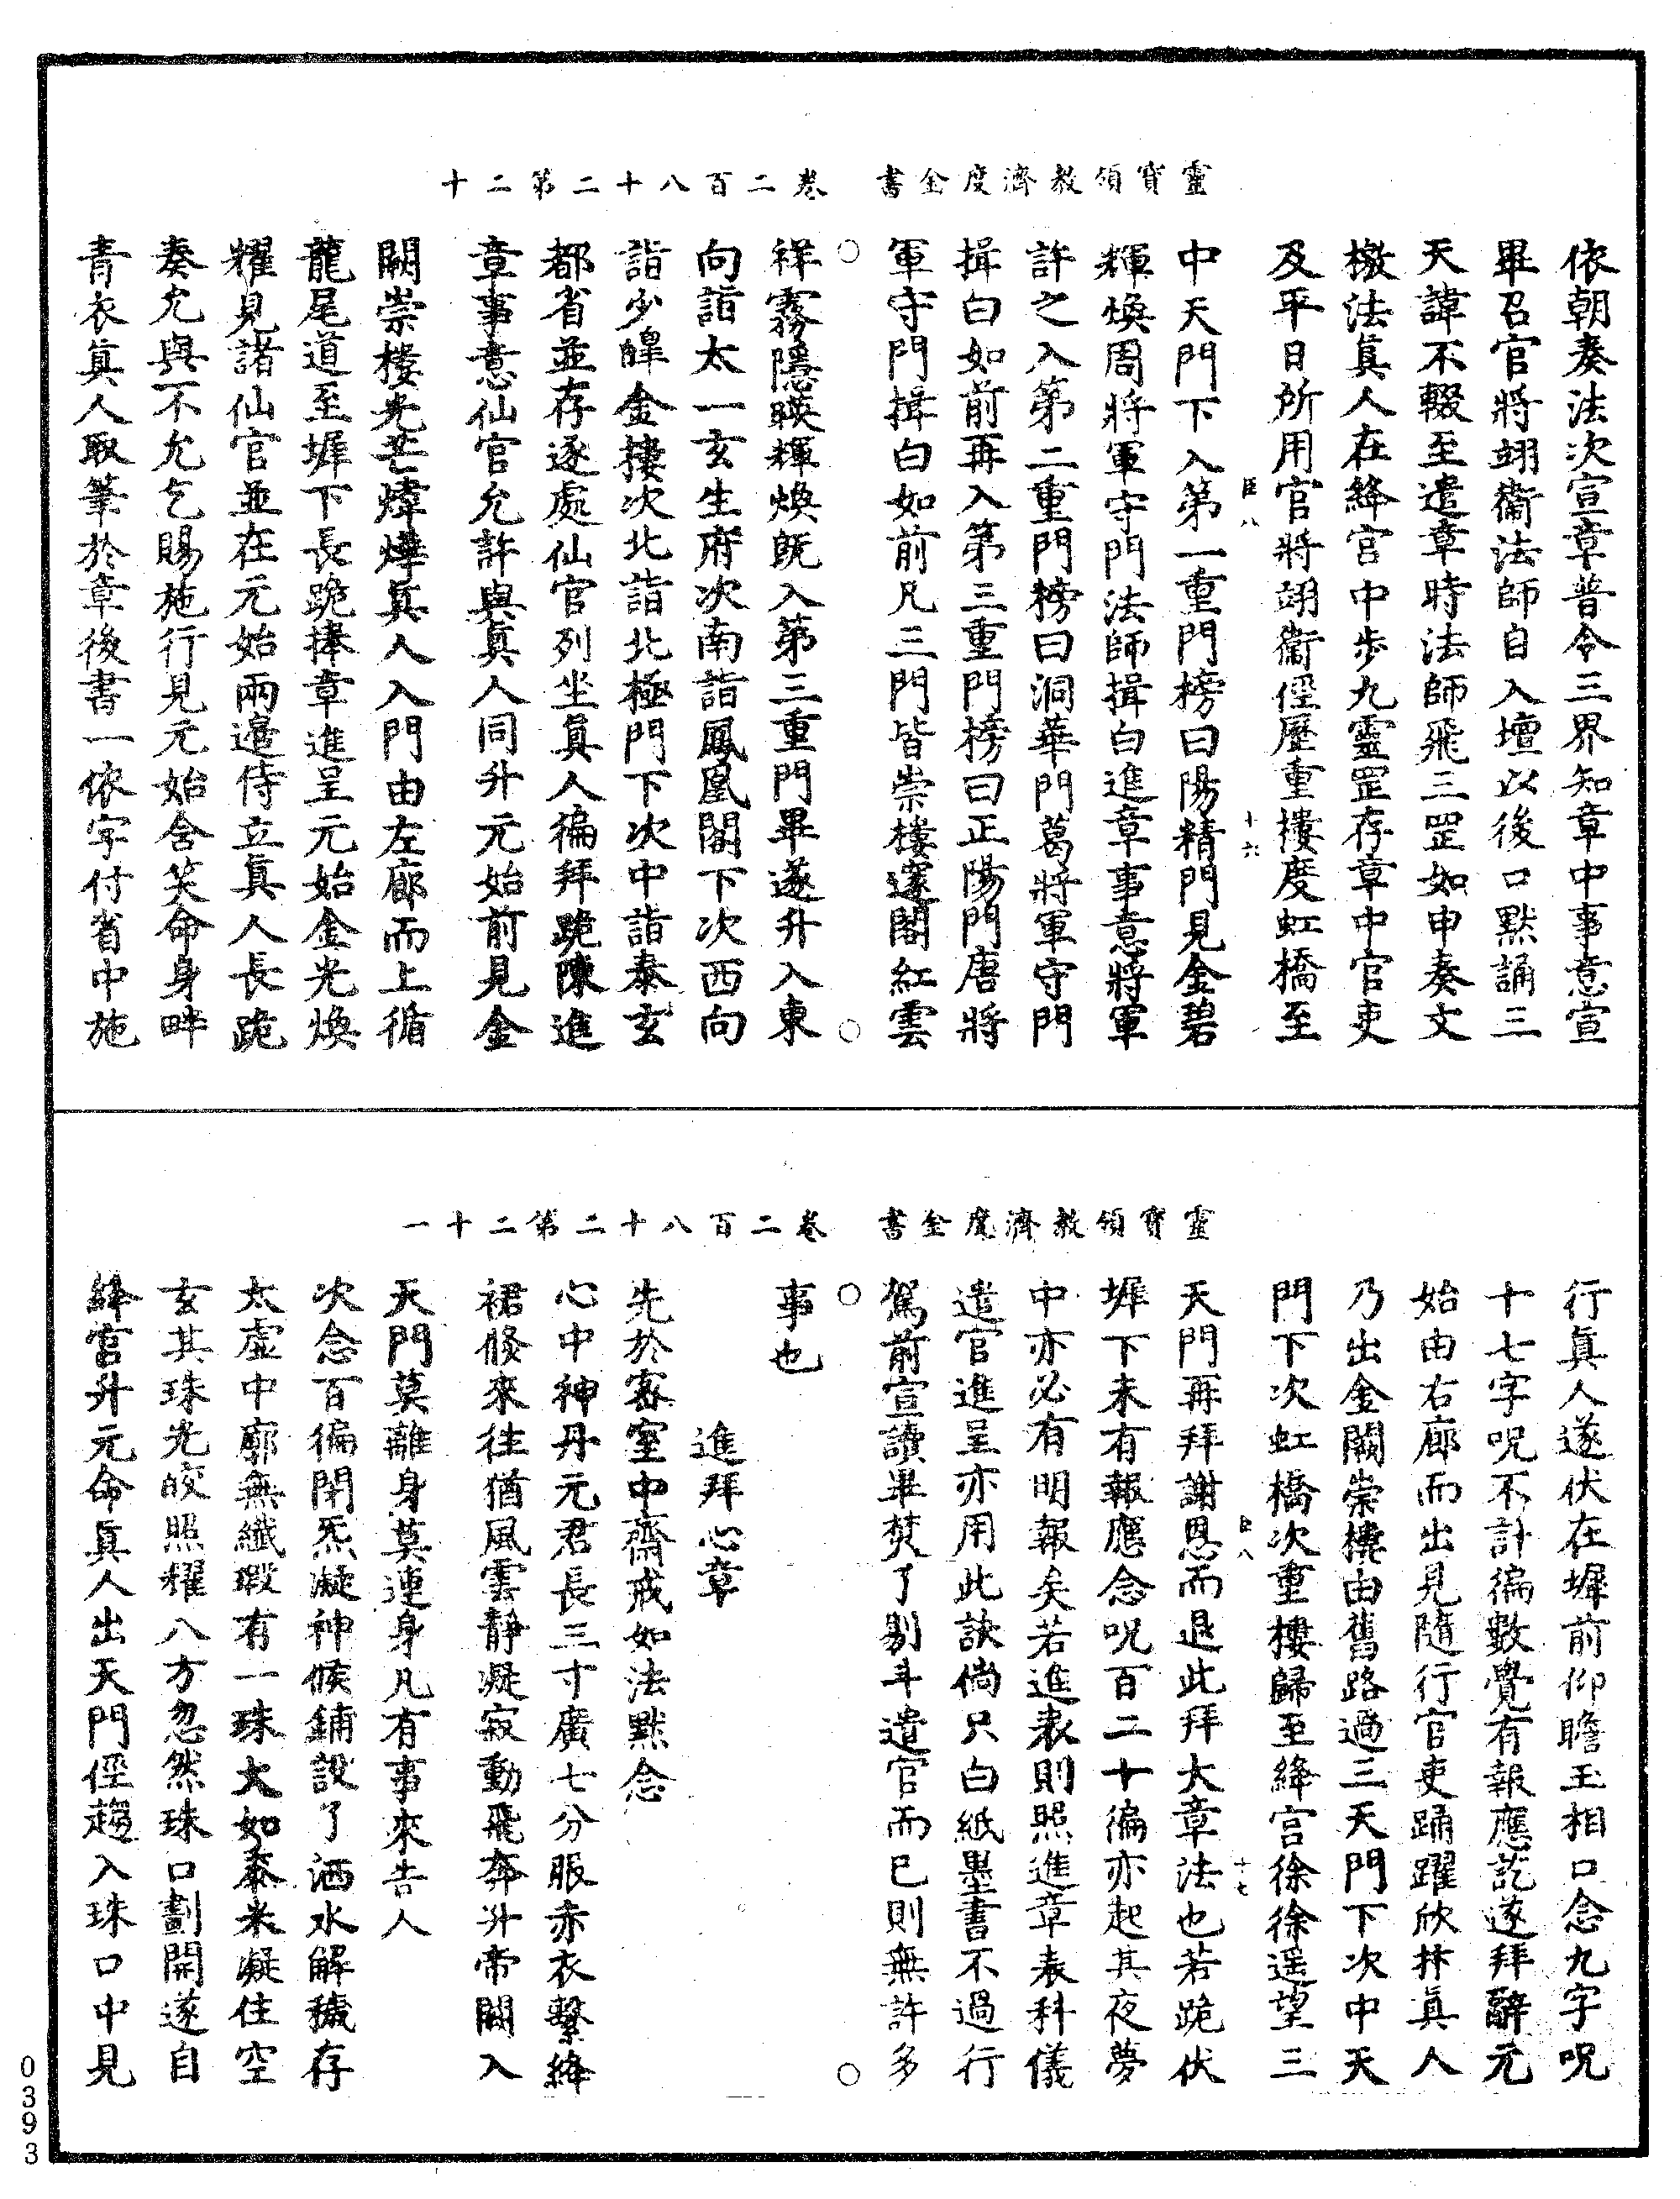 靈寶領教濟度金書 卷二百八十二第二十
依朝奏法次宣章普令三界知章中事意宣
畢召官將翊衞法師自入壇以後口默誦三
天諱不輟至遣章時法師飛三罡如申奏文
檄法眞人在絳宮中步九靈罡存章中官吏
及平日所用官將翊衞徑歷重樓度虹橋至
臣八 十六
中天門下入第一重門榜曰陽精門見金碧
輝煥周將軍守門法師揖白進章事意將軍
許之入第二重門榜曰洞華門葛將軍守門
揖白如前再入第三重門榜曰正陽門唐將
軍守門揖白如前凡三門皆崇樓邃閣紅雲
祥霧隱暎輝煥旣入第三重門畢遂升入東
向詣太一玄生府次南詣鳳凰閣下次西向
詣少皥金樓次北詣北極門下次中詣泰玄
都省並存逐處仙官列坐眞人徧拜跪陳進
章事意仙官允許與眞人同升元始前見金
闕崇樓光芒煒燁眞人入門由左廊而上循
龍尾道至墀下長跪捧章進呈元始金光煥
耀見諸仙官並在元始兩邉侍立眞人長跪
奏允與不允乞賜施行見元始含笑命身畔
青衣眞人取筆於章後書一依字付省中施
靈寶領教濟度金書 卷二百八十二第二十一
行眞人遂伏在墀前仰瞻玉相口念九字呪
十七字呪不計徧數覺有報應訖遂拜辭元
始由右廊而出見隨行官吏踊躍欣抃眞人
乃出金闕崇樓由舊路過三天門下次中天
門下次虹橋次重樓歸至絳宮徐徐遥望三
臣八 十七
天門再拜謝恩而退此拜大章法也若跪伏
墀下未有報應念呪百二十徧亦起其夜夢
中亦必有明報矣若進表則照進章表科儀
遣官進呈亦用此訣倘只白紙墨書不過行
駕前宣讀畢焚了剔斗遣官而已則無許多
事也
進拜心章
先於密室中齋戒如法默念
心中神丹元君長三寸廣七分服赤衣繫絳
裙倏來往猶風雲靜凝寂動飛奔升帝闕入
天門莫離身莫連身凡有事來告人
次念百徧閉炁凝神候鋪設了洒水解穢存
太虛中廓無纖瑕有一珠大如黍米凝住空
玄其珠光皎照耀八方忽然珠口劃開遂自
絳宮升元命眞人出天門徑趨入珠口中見
0393